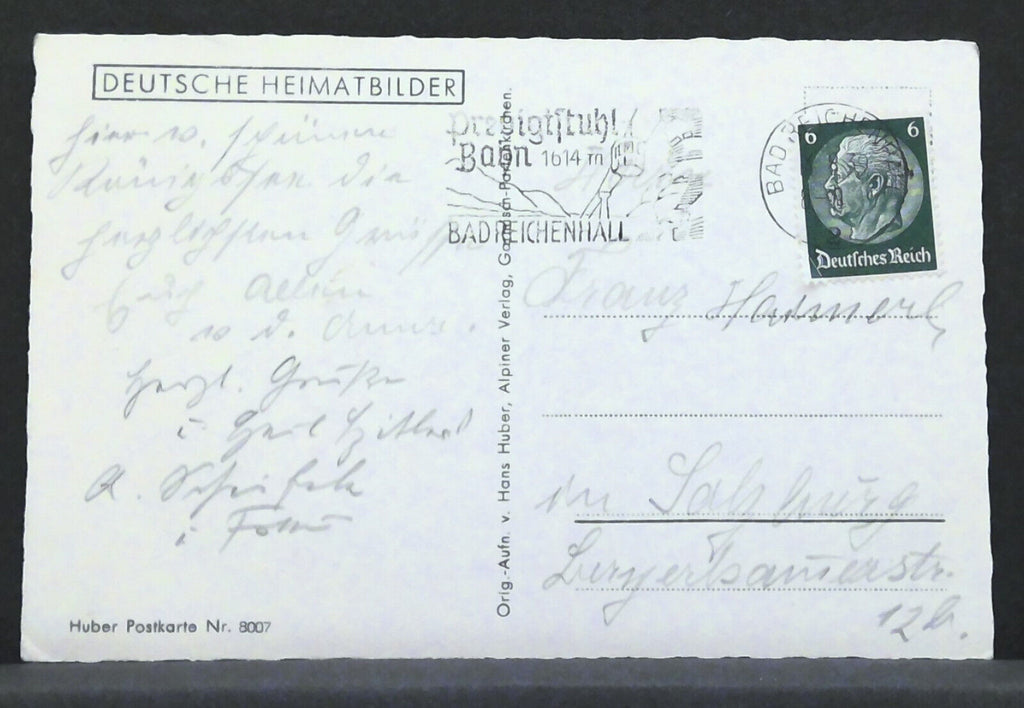 DEUTSCHE HEIMATBILDER
Hier v. schönen
Königssee die
herzlichsten Grüsse
Euch Allen
v. d.
Herzl. Grüße
i. Heil Hitler!
A.
Huber Postkarte Nr. 8007
Orig.-Aufn. v. Hans Huber, Alpiner Verlag, Garmisch-Partenkirchen.
Predigtstuhl
Bahn 1614 m
BAD REICHENHALL
BAD REICHENHALL
6 6
Deutsches Reich
Franz Hamerl
in Salzburg
str.
12b.